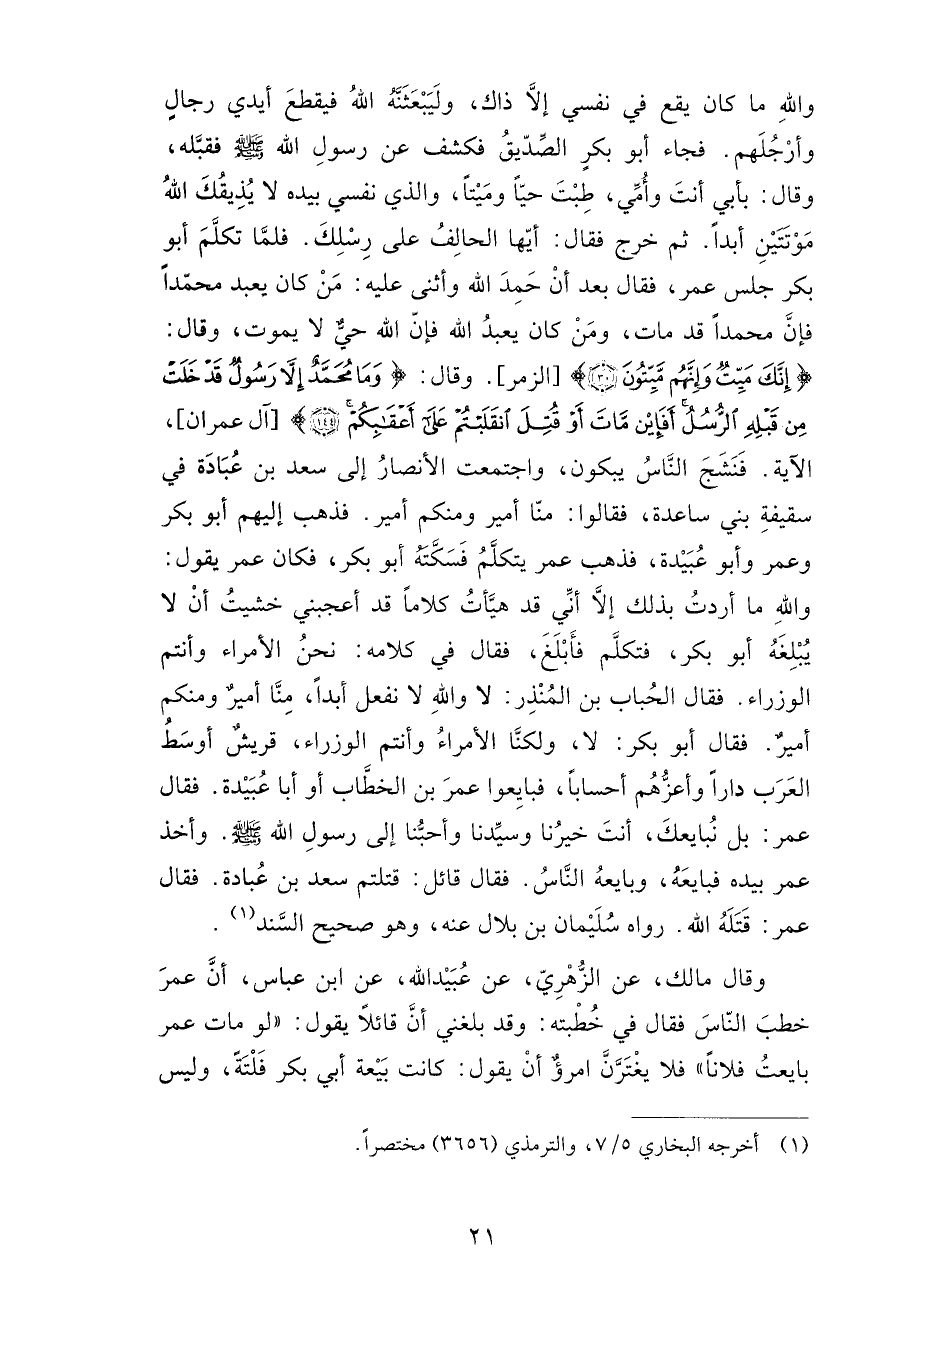 واللهِ ما كان يقع في نفسي إلاَّ ذاك، ولَيَبْعَثَنَّهُ اللهُ فيقطعَ أيدي رجالٍ
وأرْجُلَهم. فجاء أبو بكرٍ الصِّدّيقُ فكشف عن رسولِ الله ﷺ فقبَّله،
وقال: بأبي أنتَ وأُمِّي، طِبْتَ حيّاً ومَيْتاً، والذي نفسي بيده لا يُذِيقُكَ اللهُ
مَوْتَتَيْنِ أبداً. ثم خرج فقال: أيّها الحالِفُ على رِسْلِكَ. فلمَّا تكلَّمَ أبو
بكر جلس عمر، فقال بعد أنْ حَمِدَ الله وأثنى عليه: مَنْ كان يعبد محمّداً
فإنَّ محمداً قد مات، ومَنْ كان يعبدُ الله فإنّ الله حيٌّ لا يموت، وقال:
﴿إِنَّكَ مَيِّتٌ وَإِنَّهُم مَّيِّتُونَ ۝٣٠﴾ [الزمر]. وقال: ﴿وَمَا مُحَمَّدٌ إِلَّا رَسُولٌ قَدْ خَلَتْ
مِن قَبْلِهِ ٱلرُّسُلُ ۚ أَفَإِيْن مَّاتَ أَوْ قُتِلَ ٱنقَلَبْتُمْ عَلَىٰٓ أَعْقَٰبِكُمْ ۚ ۝١٤٤﴾ [آل عمران]،
الآية. فَنَشَجَ النَّاسُ يبكون، واجتمعت الأنصارُ إلى سعد بن عُبَادَة في
سقيفةِ بني ساعدة، فقالوا: منّا أمير ومنكم أمير. فذهب إليهم أبو بكر
وعمر وأبو عُبَيْدة، فذهب عمر يتكلَّمُ فَسَكَّتَهُ أبو بكر، فكان عمر يقول:
واللهِ ما أردتُ بذلك إلاَّ أنّي قد هيَّأتُ كلاماً قد أعجبني خشيتُ أنْ لا
يُبْلِغَهُ أبو بكر، فتكلَّم فأَبْلَغَ، فقال في كلامه: نحنُ الأمراء وأنتم
الوزراء. فقال الحُباب بن المُنْذِر: لا واللهِ لا نفعل أبداً، مِنَّا أميرٌ ومنكم
أميرٌ. فقال أبو بكر: لا، ولكنَّا الأمراءُ وأنتم الوزراء، قريشٌ أوسَطُ
العَرَب داراً وأعزُّهُم أحساباً، فبايِعوا عمرَ بن الخطَّاب أو أبا عُبَيْدة. فقال
عمر: بل نُبايعكَ، أنتَ خيرُنا وسيِّدنا وأحبُّنا إلى رسولِ الله ﷺ. وأخذ
عمر بيده فبايعَهُ، وبايعهُ النَّاسُ. فقال قائل: قتلتم سعد بن عُبادة. فقال
عمر: قَتَلَهُ الله. رواه سُلَيْمان بن بلال عنه، وهو صحيح السَّند(١).
وقال مالك، عن الزُّهْرِيّ، عن عُبَيْدالله، عن ابن عباس، أنَّ عمرَ
خطبَ النّاسَ فقال في خُطْبته: وقد بلغني أنَّ قائلاً يقول: «لو مات عمر
بايعتُ فلاناً» فلا يغْتَرَّنَّ امرؤٌ أنْ يقول: كانت بَيْعة أبي بكر فَلْتَةً، وليس
(١) أخرجه البخاري ٥/ ٧، والترمذي (٣٦٥٦) مختصراً.
٢١